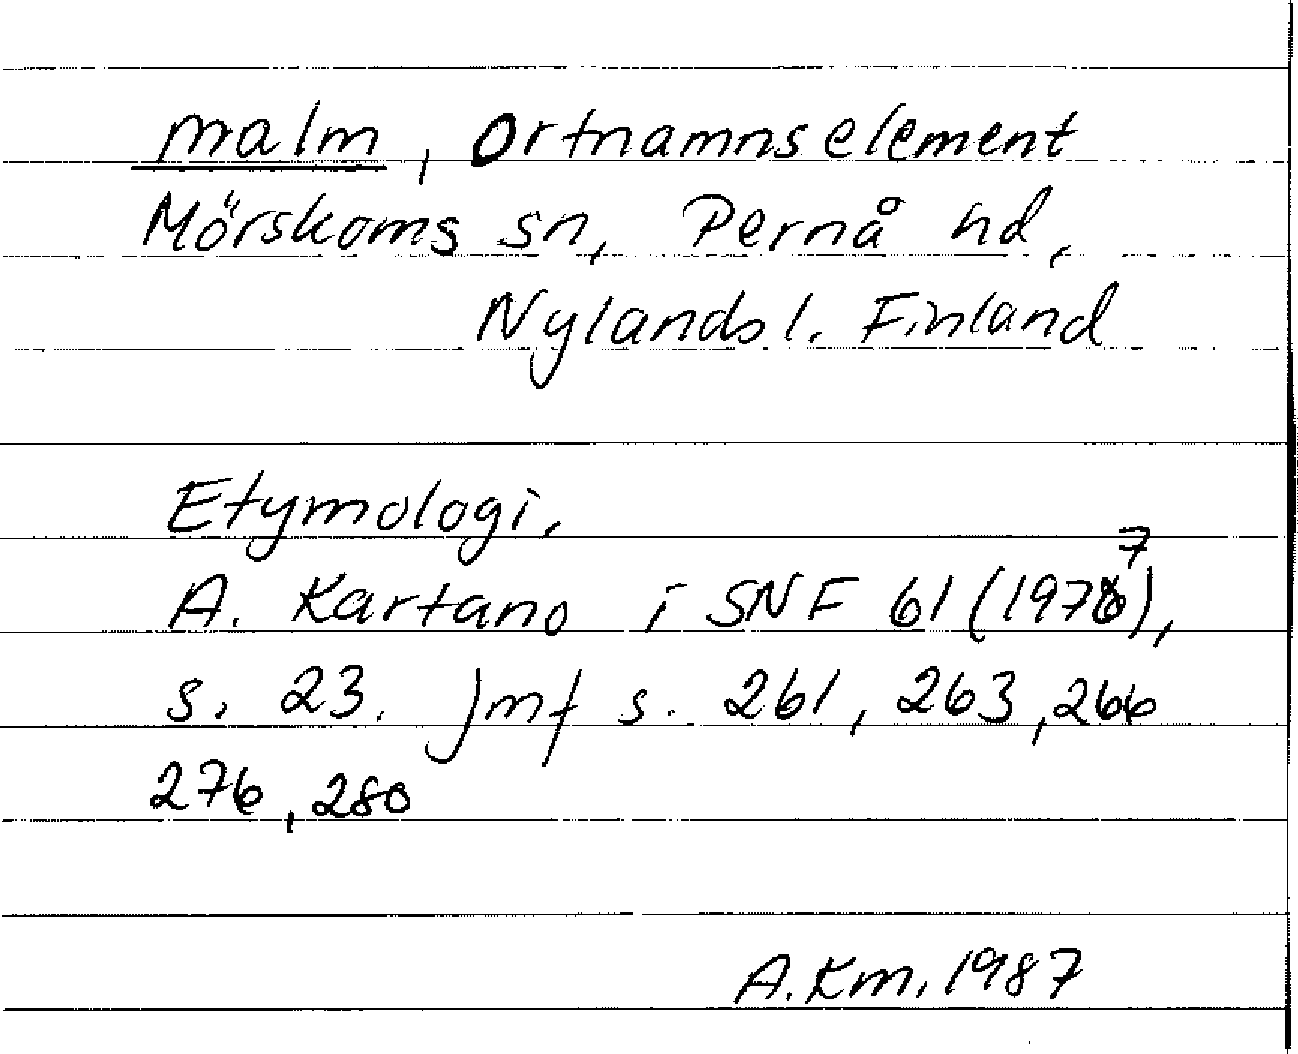 malm, Ortnamnselement
Mörskoms sn, Pernå hd,
Nylands l. Finland
Etymologi,
A. Kartano i SNF 61 (1977),
s. 23. Jmf s. 261, 263, 266
276, 280
A.Km, 1987